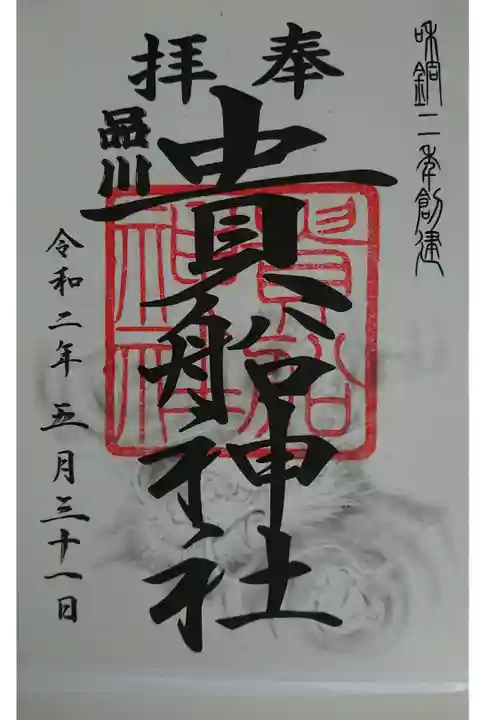 和銅二年創建
奉拝
貴船神社
品川
令和二年五月三十一日
貴船
神社